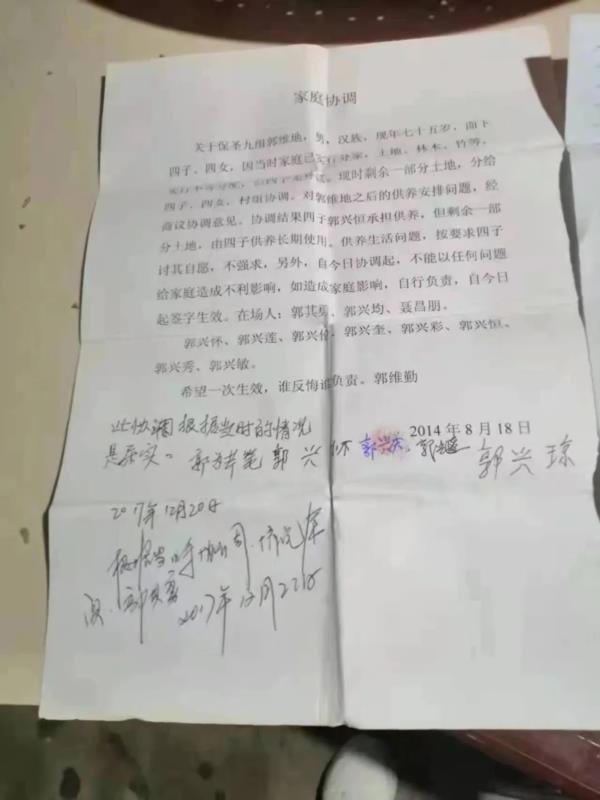 家庭协调
关于保圣九组郭维地，男，汉族，现年七十五岁，面下
四子、四女，因当时家庭已实行分家，土地、林木、竹等，
现时剩余一部分土地，分给
四子、四女，村组协调。对郭维地之后的供养安排问题，经
商议协调意见。协调结果四子郭兴恒承担供养，但剩余一部
分土地，由四子供养长期使用。供养生活问题，按要求四子
讨其自愿，不强求，另外，自今日协调起，不能以任何问题
给家庭造成不利影响，如造成家庭影响，自行负责，自今日
起签字生效。在场人：郭其勇、郭兴均、聂昌朋。
郭兴怀、郭兴莲、郭兴伦、郭兴奎、郭兴彩、郭兴恒、
郭兴秀、郭兴敏。
希望一次生效，谁反悔谁负责。郭维勤
2014年8月18日
此协调根据当时的情况
是属实。郭兴怀 郭兴琼
2017年12月20日
根据当时协调情况属
实。郭其勇 2017年12月22日